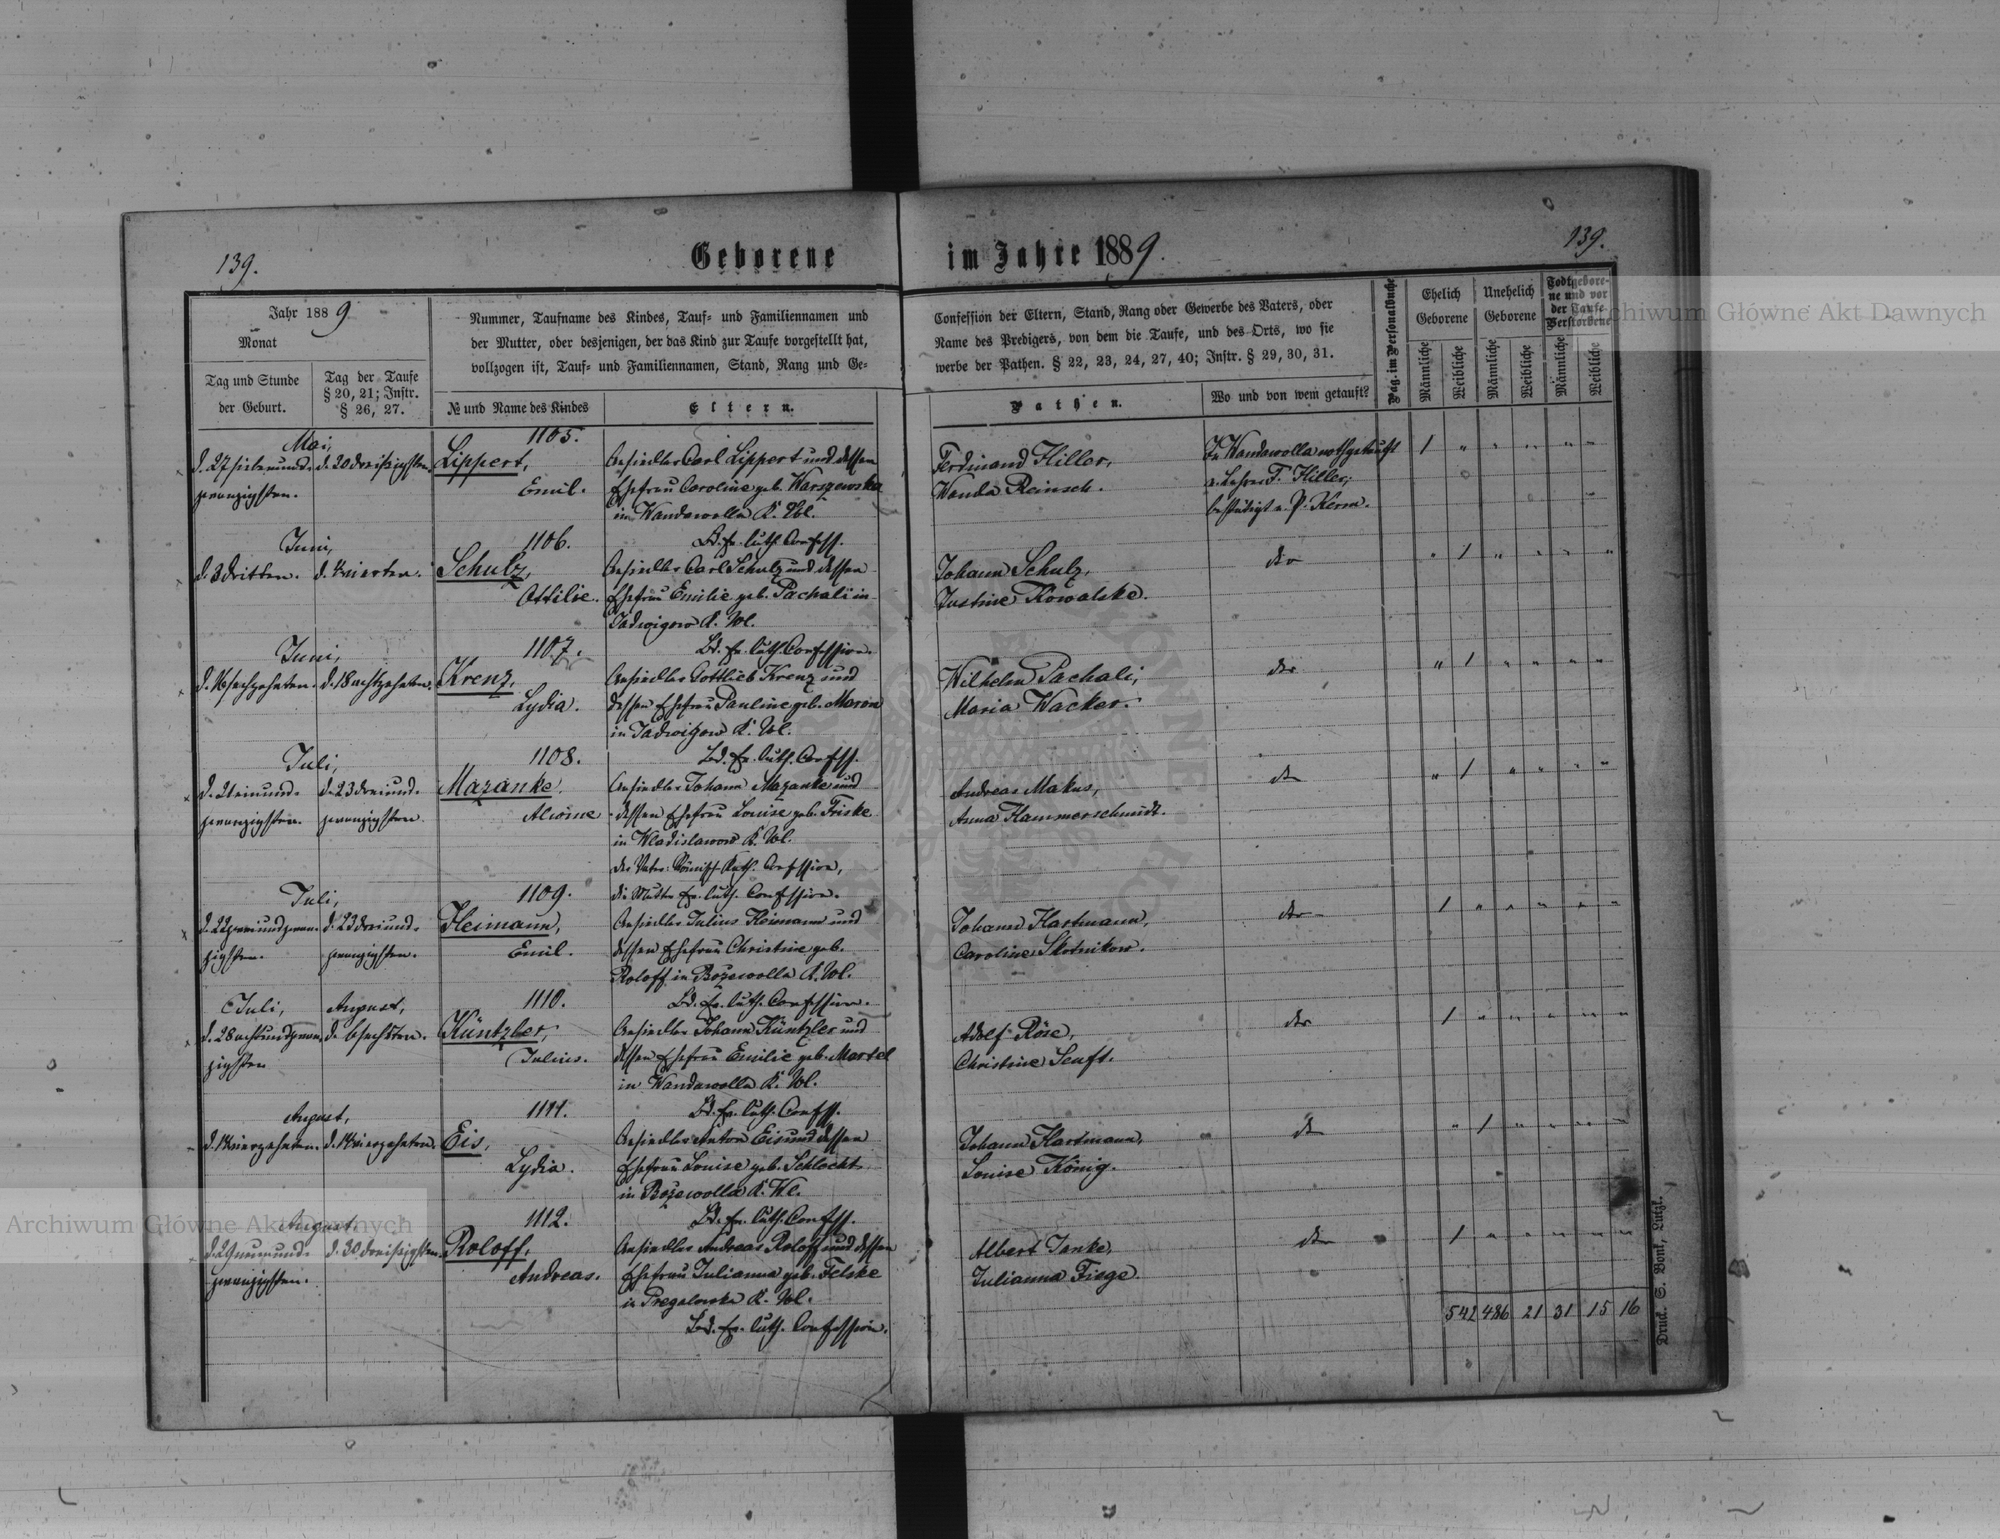 139.
Geborene
im Jahre 1889.
139.
Jahr 1889
Monat
Tag und Stunde
der Geburt.
Tag der Taufe
§ 20, 21; Instr.
§ 26, 27.
Nummer, Taufname des Kindes, Tauf- und Familiennamen und
der Mutter, oder desjenigen, der das Kind zur Taufe vorgestellt hat,
vollzogen ist, Tauf- und Familiennamen, Stand, Rang und Ge-
№ und Name des Kindes
Eltern.
Confession der Eltern, Stand, Rang oder Gewerbe des Vaters, oder
Name des Predigers, von dem die Taufe, und des Orts, wo sie
werbe der Pathen. § 22, 23, 24, 27, 40; Instr. § 29, 30, 31.
Pathen.
Wo und von wem getauft?
Pag. im Personalbuche
Ehelich
Geborene
Unehelich
Geborene
Todtgebore-
ne und vor
der Taufe
Verstorbene
Männliche
Weibliche
Männliche
Weibliche
Männliche
Weibliche
Mai,
d. 27 siebenund-
zwanzigsten.
d. 30 dreißigsten.
1105.
Lippert,
Emil.
Ansiedler Carl Lippert und dessen
Ehefrau Caroline geb. Warszewska
in Wandawolla K. Wl.
Bd. Ev. luth. Confess.
Ferdinand Hiller,
Wanda Reinsch.
In Wandawolla nothgetauft
v. Lehrer F. Hiller,
bestätigt v. P. Kerm.
1 " " " " "
Juni,
d. 3 dritten.
d. 4 vierten.
1106.
Schulz,
Ottilie.
Ansiedler Carl Schulz und dessen
Ehefrau Emilie geb. Pachali in
Jadwigow K. Wl.
Bd. Ev. luth. Confession.
Johann Schulz,
Justine Kowalske.
dto
" 1 " " " "
Juni,
d. 16 sechzehnten.
d. 18 achtzehnten.
1107.
Krenz,
Lydia.
Ansiedler Gottlieb Krenz und
dessen Ehefrau Pauline geb. Maron
in Jadwigow K. Wl.
Bd. Ev. luth. Confess.
Wilhelm Pachali,
Maria Wacker.
dto
" 1 " " " "
Juli,
d. 21 einund-
zwanzigsten.
d. 23 dreiund-
zwanzigsten.
1108.
Mazanke,
Alwine
Ansiedler Johann Mazanke und
dessen Ehefrau Louise geb. Friske
in Wladislawow K. Wl.
der Vater: Römisch-Kath. Confession,
die Mutter Ev. luth. Confession.
Andreas Makus,
Anna Hammerschmidt.
dto
" 1 " " " "
Juli,
d. 22 zweiundzwan-
zigsten.
d. 23 dreiund-
zwanzigsten.
1109.
Heimann,
Emil.
Ansiedler Julius Heimann und
dessen Ehefrau Christine geb.
Roloff in Bożawolla K. Wl.
Bd. Ev. luth. Confession.
Johann Hartmann,
Caroline Skotnikow.
dto
1 " " " " "
Juli,
d. 28 achtundzwan-
zigsten
August,
d. 6 sechsten.
1110.
Küntzler,
Julius.
Ansiedler Johann Küntzler und
dessen Ehefrau Emilie geb. Martel
in Wandawolla K. Wl.
Bd. Ev. luth. Confess.
Adolf Röse,
Christine Senft.
dto
1 " " " " "
August,
d. 14 vierzehnten.
d. 14 vierzehnten.
1111.
Eis,
Lydia.
Ansiedler Anton Eis und dessen
Ehefrau Louise geb. Schlecht
in Bożawolla K. Wl.
Bd. Ev. luth. Confess.
Johann Hartmann,
Louise König.
dto
" 1 " " " "
August,
d. 29 neunund-
zwanzigsten.
d. 30 dreißigsten.
1112.
Roloff,
Andreas.
Ansiedler Andreas Roloff und dessen
Ehefrau Julianna geb. Felske
in K. Wl.
Bd. Ev. luth. Confession.
Albert Janke,
Julianna Fiege.
dto
1 " " " " "
542 486 21 31 15 16
Druck. S. Bonk, Lutzk.
Archiwum Główne Akt Dawnych
Archiwum Główne Akt Dawnych